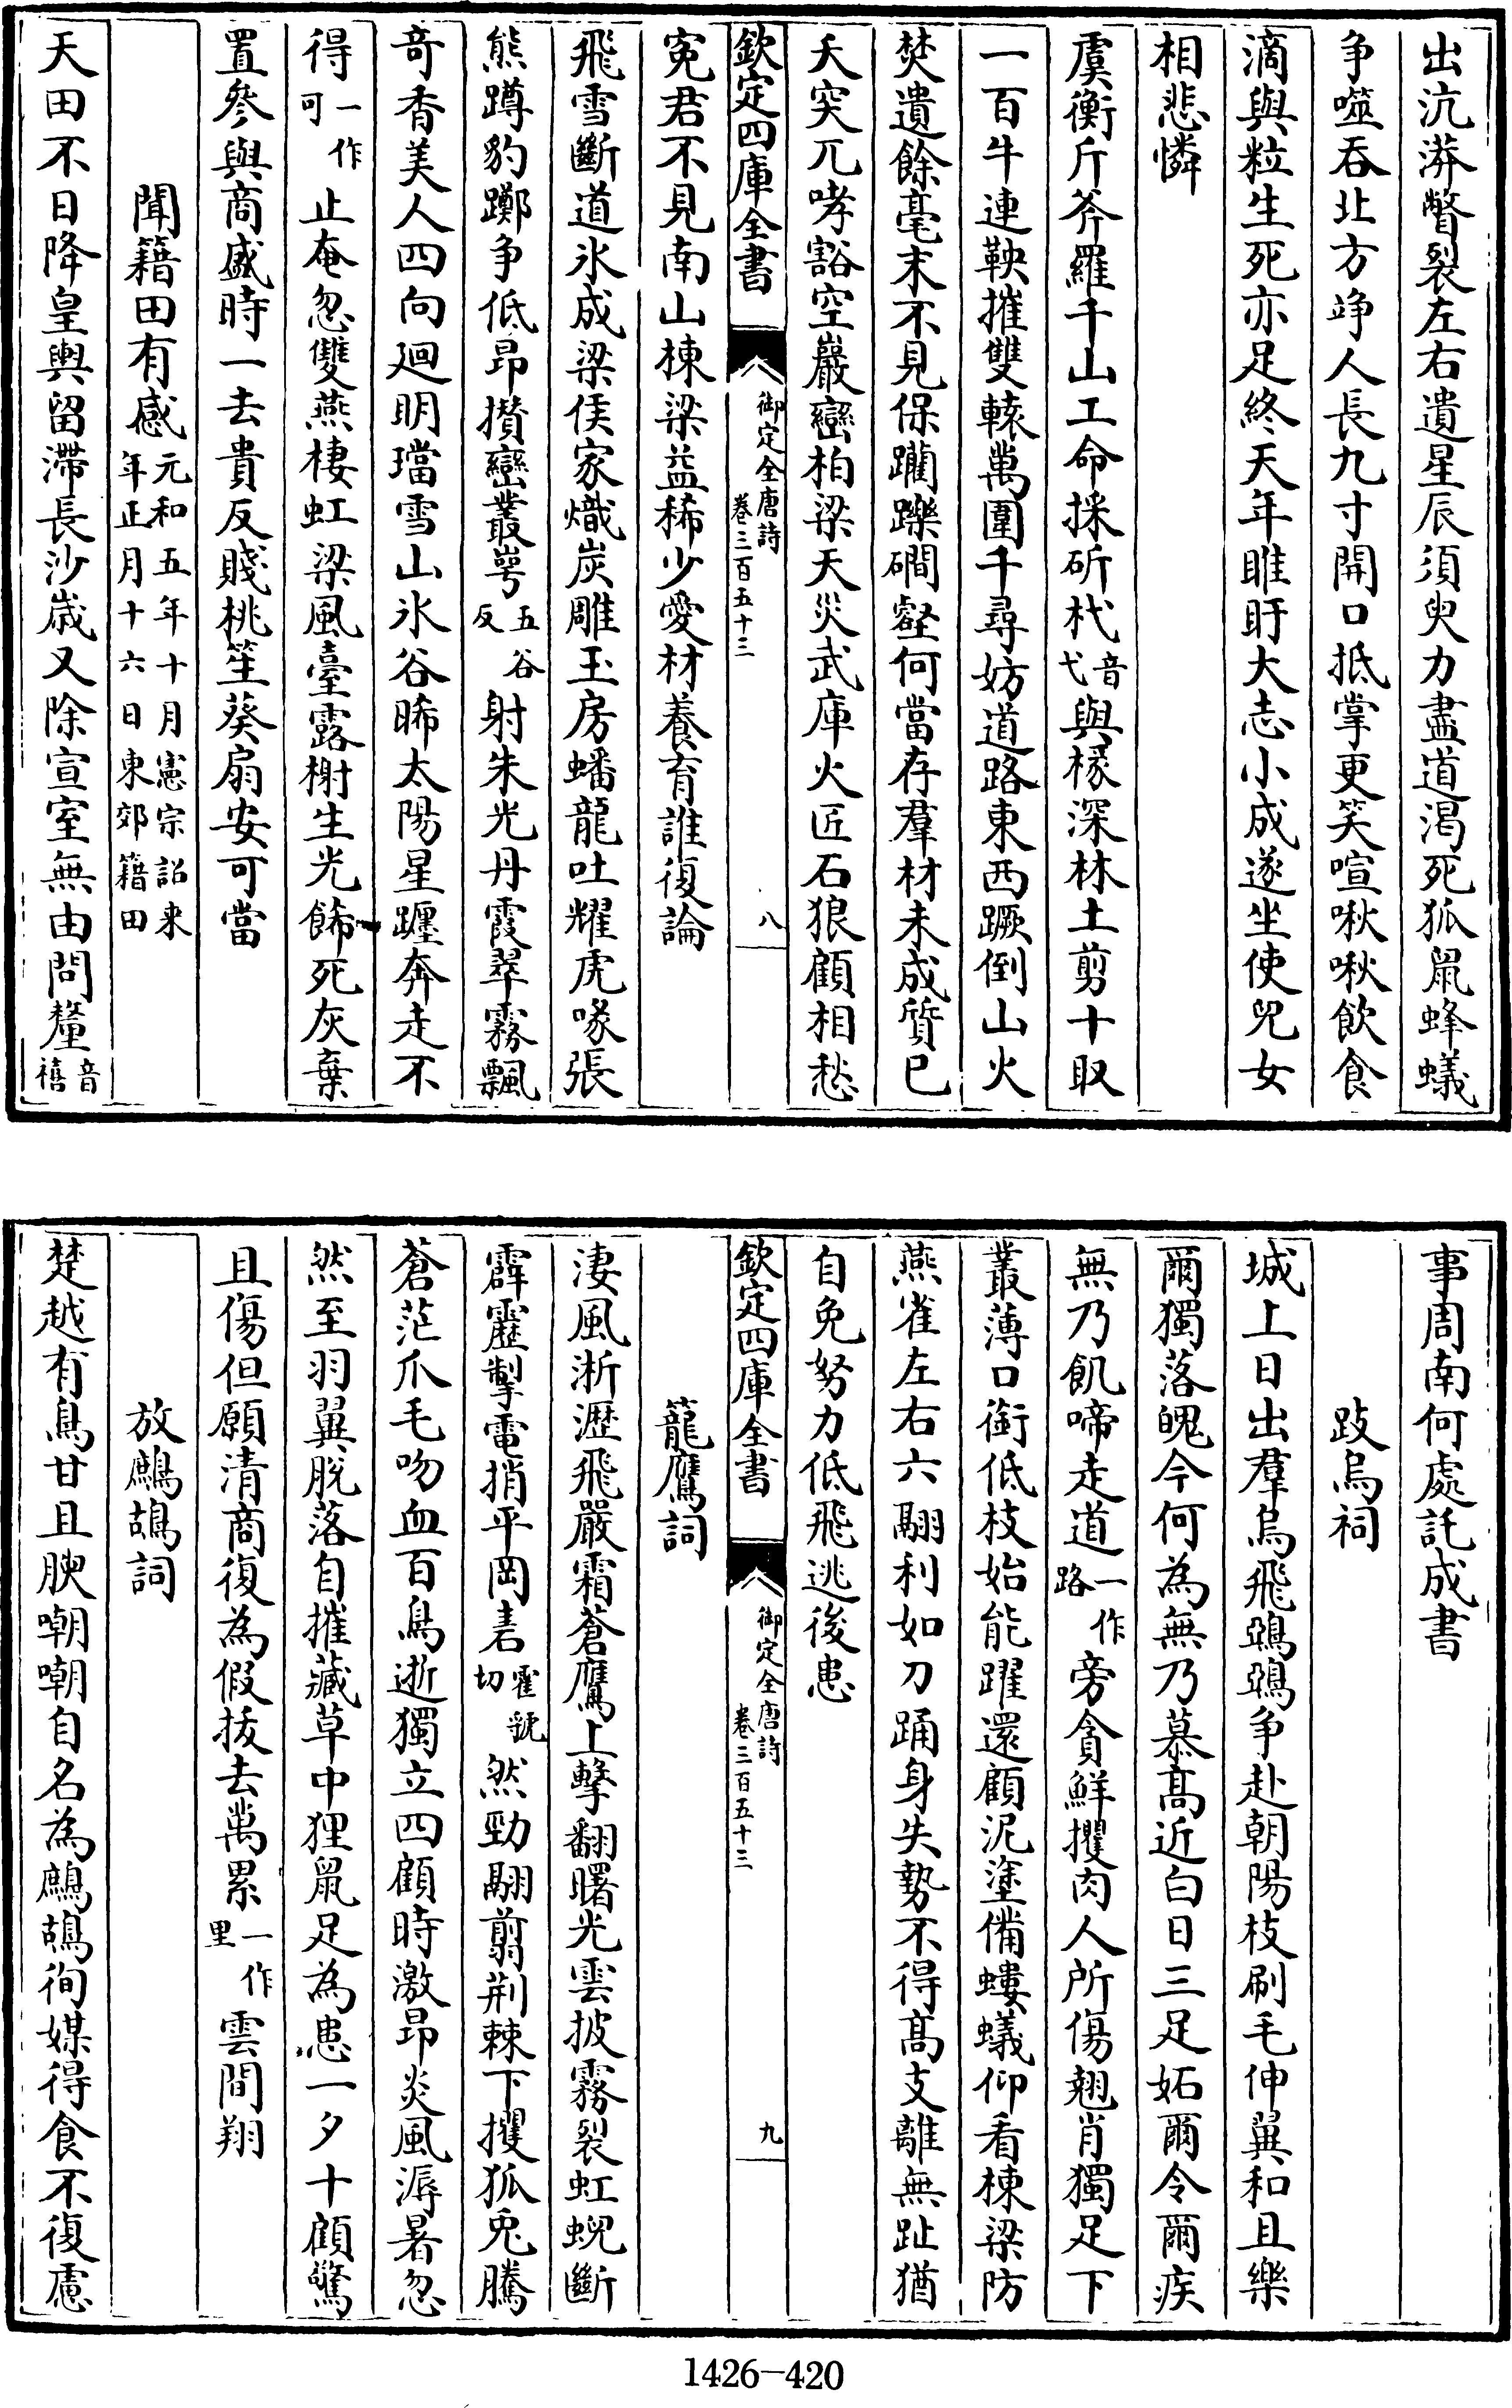 出沆漭瞥裂左右遺星辰須臾力盡道渴死狐鼠蜂蟻
争噬吞北方竫人長九寸開口抵掌更笑喧啾啾飲食
滴與粒生死亦足終天年睢盱大志小成遂坐使兒女
相悲憐
虞衡斤斧羅千山工命採斫杙音弋與椽深林土剪十取
一百牛連鞅摧雙轅萬圍千尋妨道路東西蹶倒山火
焚遺餘毫末不見保躪躒磵壑何當存羣材未成質已
夭突兀哮豁空巖巒柏梁天災武庫火匠石狼顧相愁
欽定四庫全書 御定全唐詩 卷三百五十三 八
寃君不見南山棟梁益稀少愛材養育誰復論
飛雪斷道氷成梁侯家熾炭雕玉房蟠龍吐耀虎喙張
熊蹲豹躑争低昂攢巒叢崿五谷反射朱光丹霞翠霧飄
竒香美人四向廻明璫雪山氷谷晞太陽星躔奔走不
得一作可止奄忽雙燕棲虹梁風臺露榭生光飾死灰棄
置參與商盛時一去貴反賤桃笙葵扇安可當
聞籍田有感元和五年十月憲宗詔来年正月十六日東郊籍田
天田不日降皇輿留滯長沙歳又除宣室無由問釐音禧
事周南何處託成書
跂烏祠
城上日出羣烏飛鵶鵶争赴朝陽枝刷毛伸翼和且樂
爾獨落魄今何為無乃慕髙近白日三足妬爾令爾疾
無乃飢啼走道一作路旁貪鮮攫肉人所傷翹肖獨足下
叢薄口銜低枝始能躍還顧泥塗備螻蟻仰看棟梁防
燕雀左右六翮利如刀踊身失勢不得髙支離無趾猶
自免努力低飛逃後患
欽定四庫全書 御定全唐詩 卷三百五十三 九
籠鷹詞
淒風淅瀝飛嚴霜蒼鷹上擊翻曙光雲披霧裂虹蜺斷
霹靂掣電捎平岡砉霍虢切然勁翮翦荆棘下攫狐兎騰
蒼茫爪毛吻血百鳥逝獨立四顧時激昂炎風溽暑忽
然至羽翼脫落自摧藏草中狸鼠足為患一夕十顧驚
且傷但願清商復為假拔去萬累一作里雲間翔
放鷓鴣詞
楚越有鳥甘且腴嘲嘲自名為鷓鴣徇媒得食不復慮
1426-420